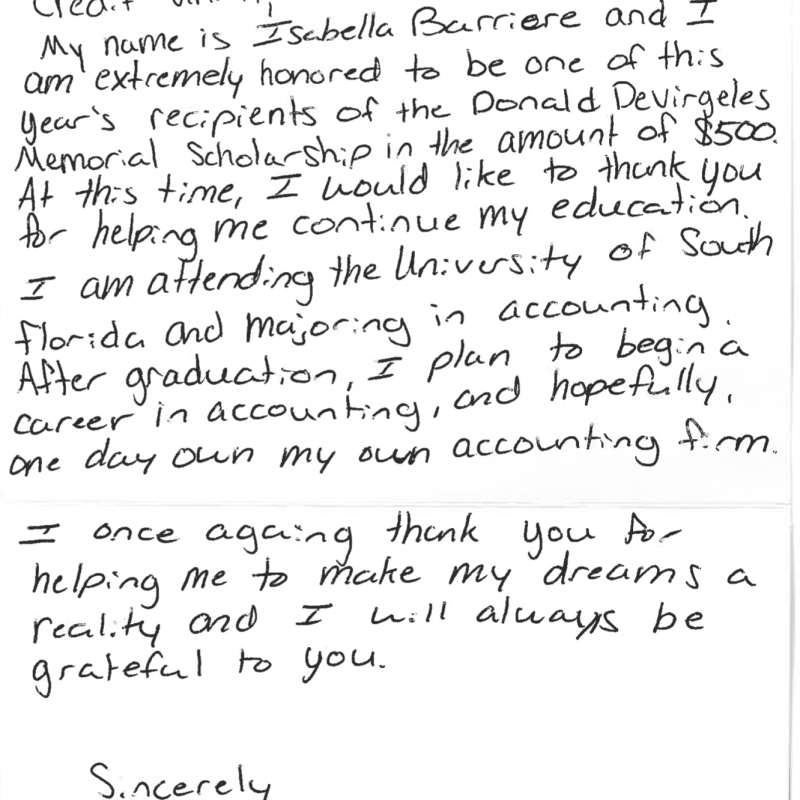 Credit
My name is Isabella Barriere and I
am extremely honored to be one of this
year's recipients of the Donald DeVirgeles
Memorial Scholarship in the amount of $500.
At this time, I would like to thank you
for helping me continue my education.
I am attending the University of South
Florida and majoring in accounting.
After graduation, I plan to begin a
career in accounting, and hopefully,
one day own my own accounting firm.
I once againg thank you for
helping me to make my dreams a
reality and I will always be
grateful to you.
Sincerely